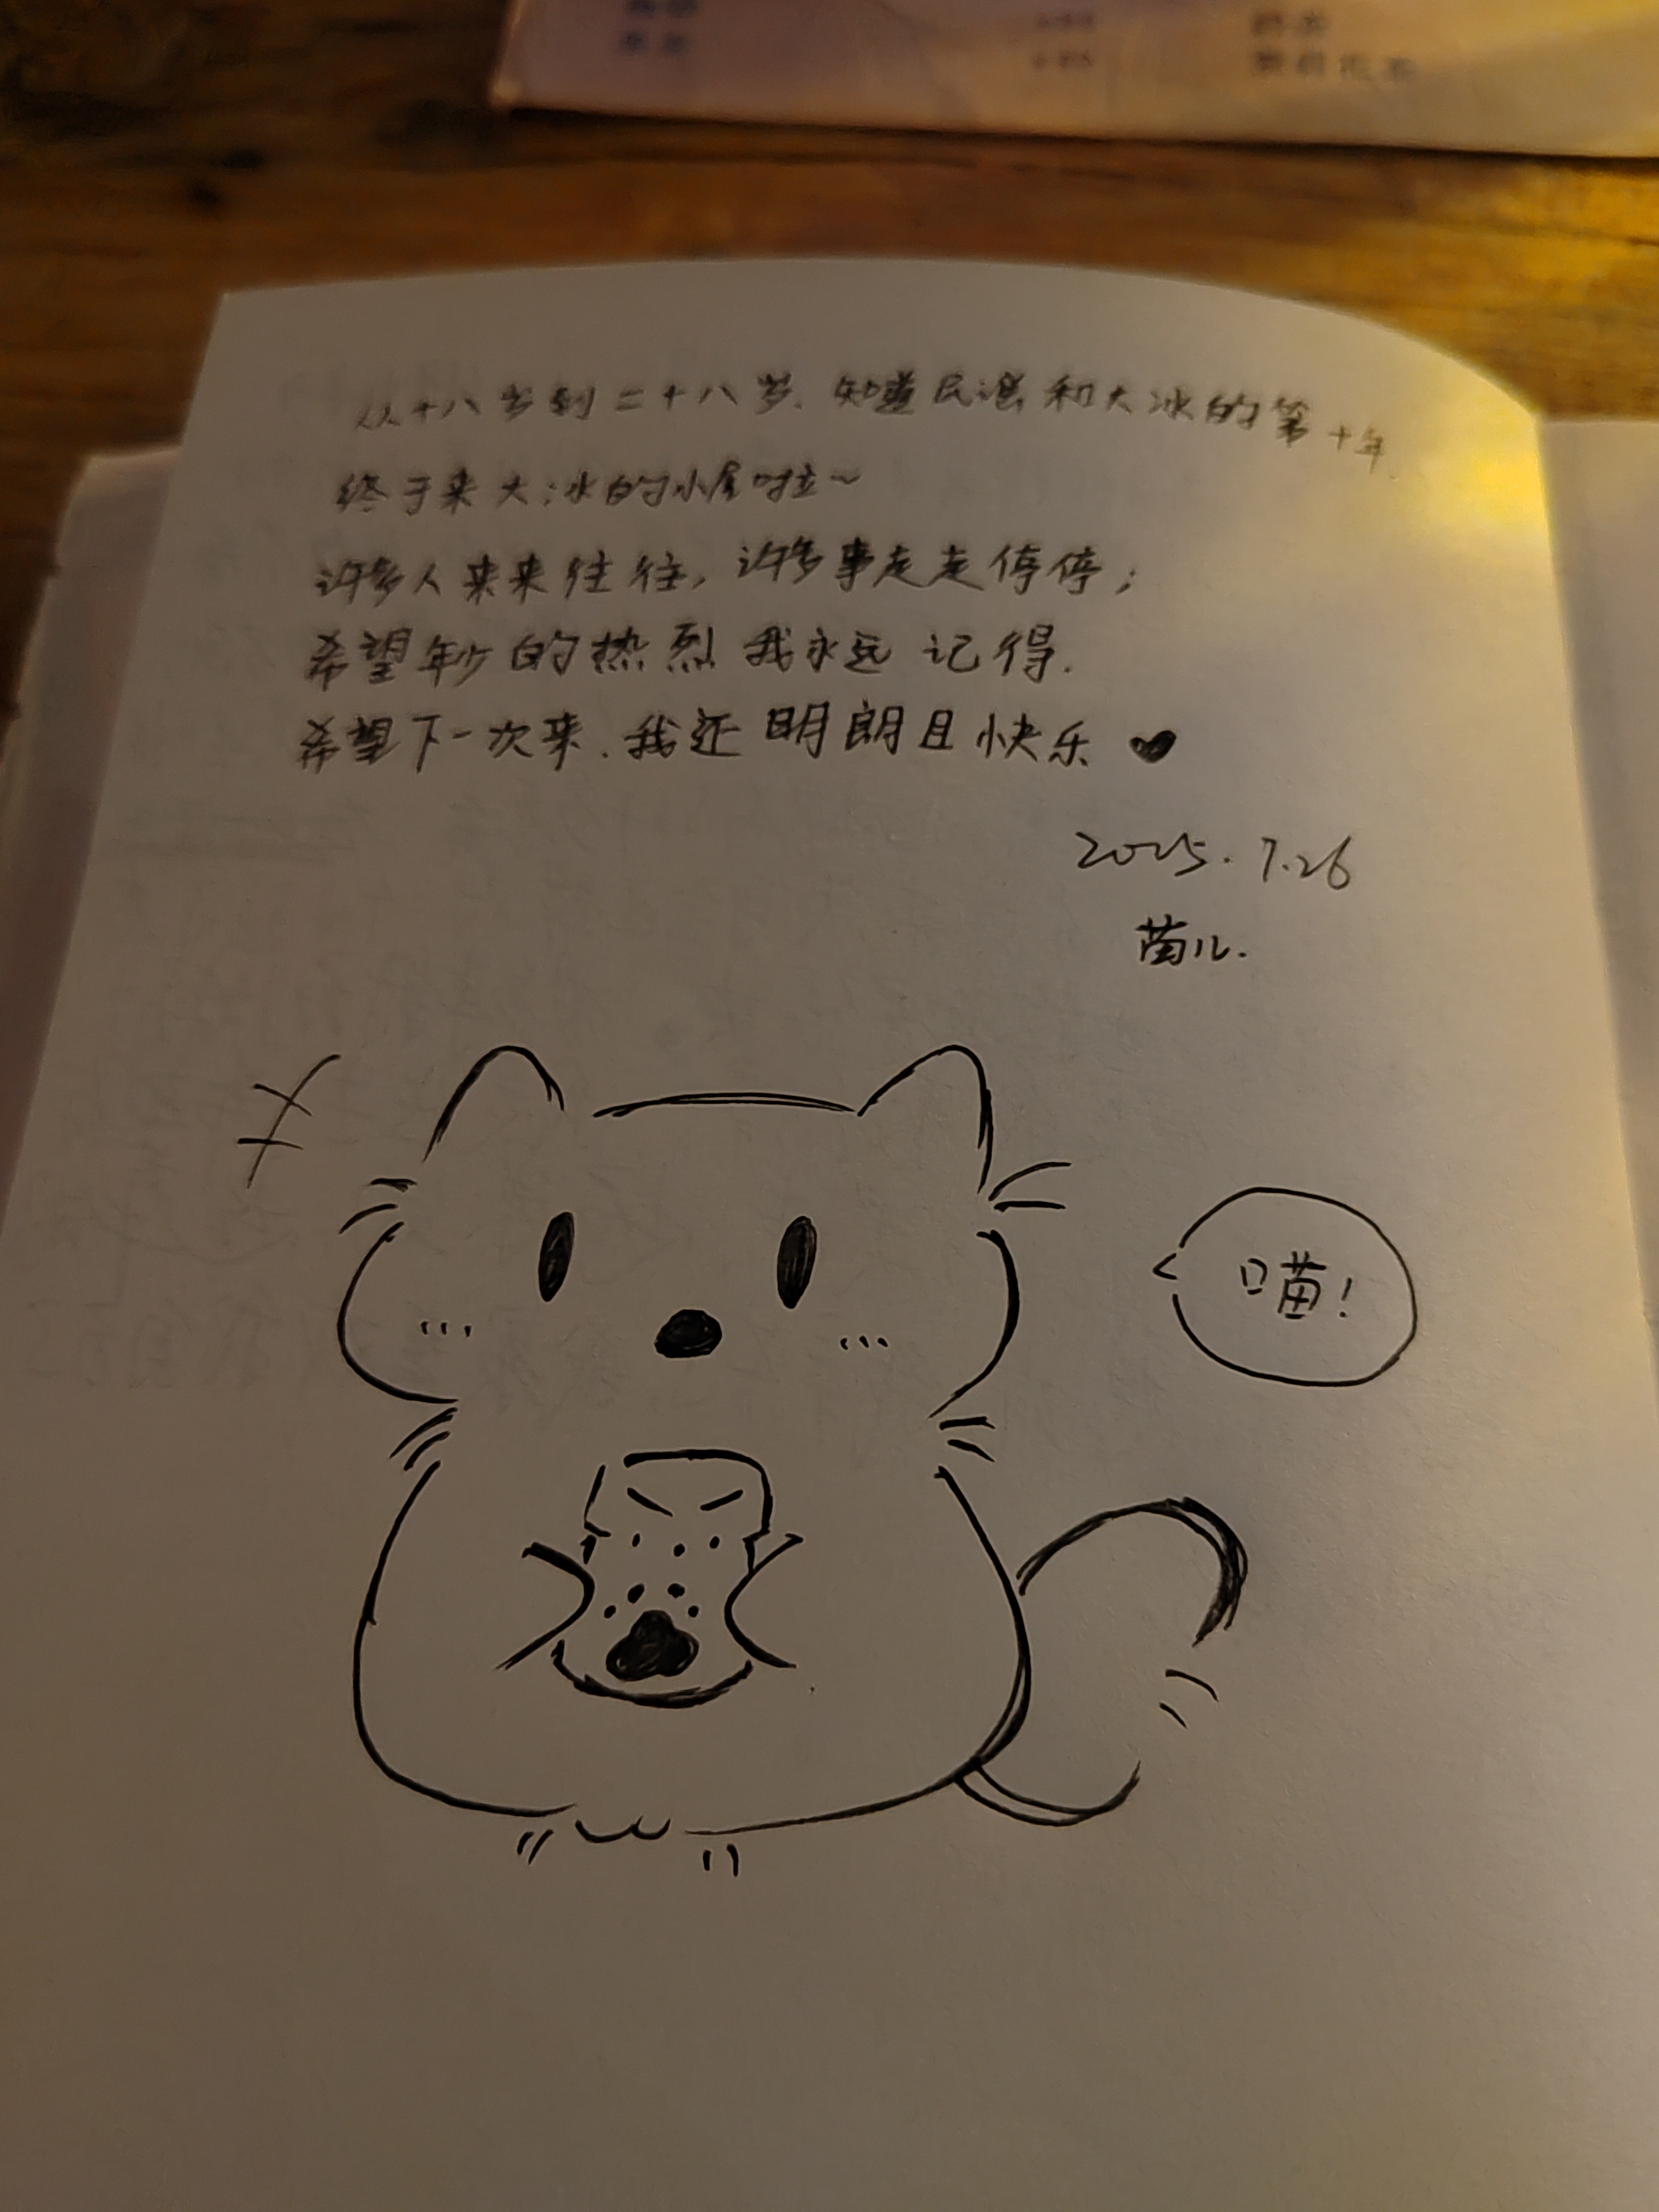 从十八岁到二十八岁.知道民谣和大冰的第十年.
终于来大冰的小屋啦~
许多人来来往往,许多事走走停停;
希望年少的热烈我永远记得.
希望下一次来.我还明朗且快乐
2025.7.26
苗儿.
喵!